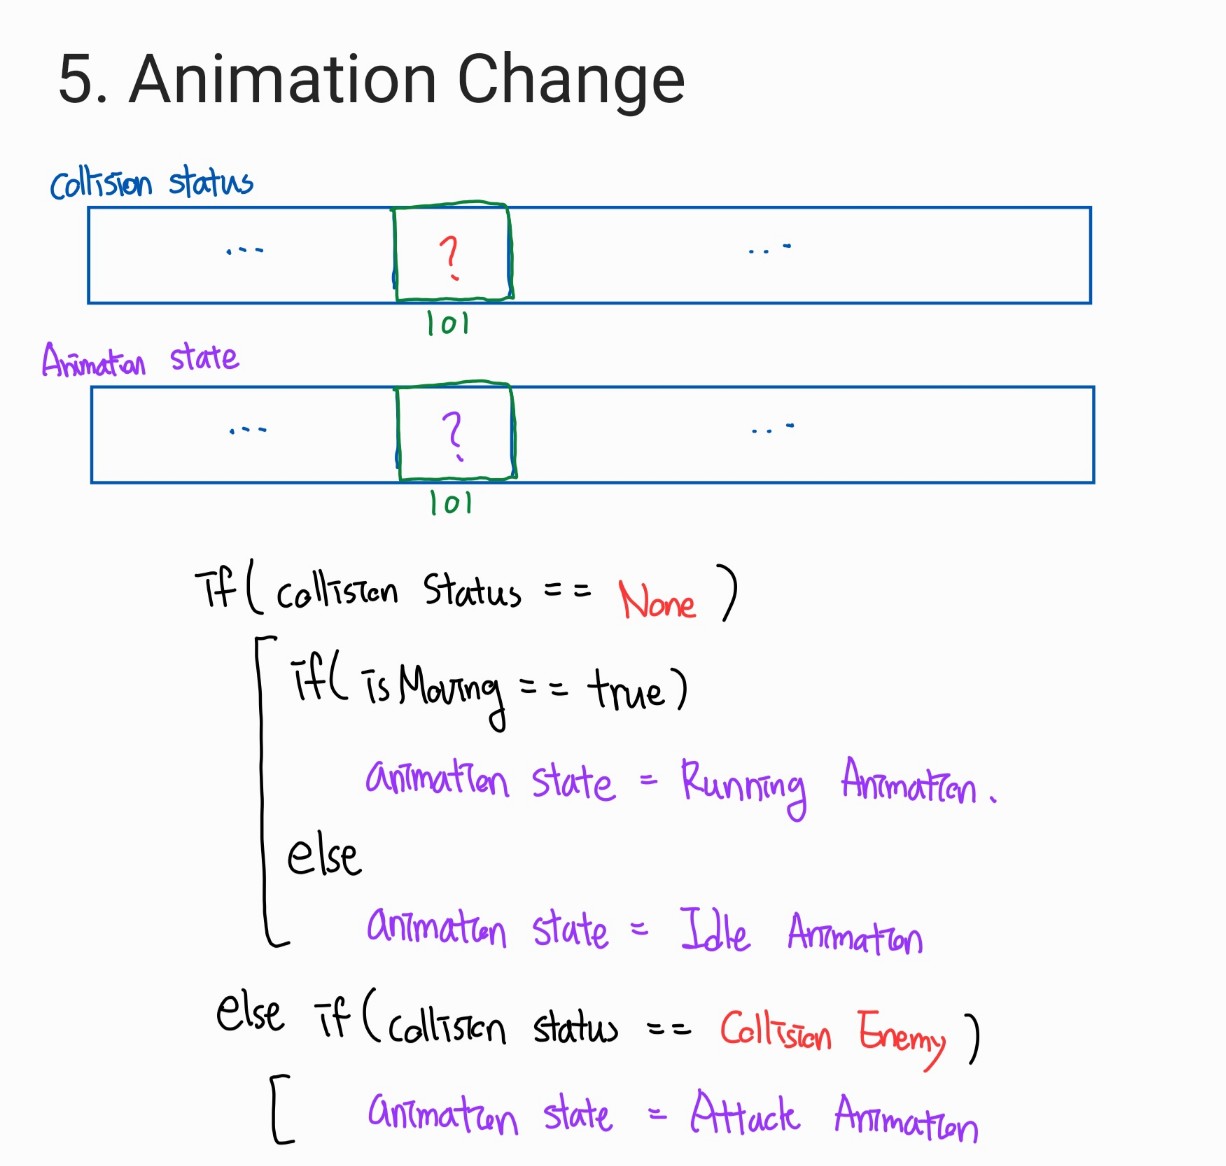 5. Animation Change
Collision status
... ? ...
101
Animation state
... ? ...
101
if( collision status == None )
if( is Moving == true)
animation state = Running Animation.
else
animation state = Idle Animation
else if( collision status == Collision Enemy )
animation state = Attack Animation